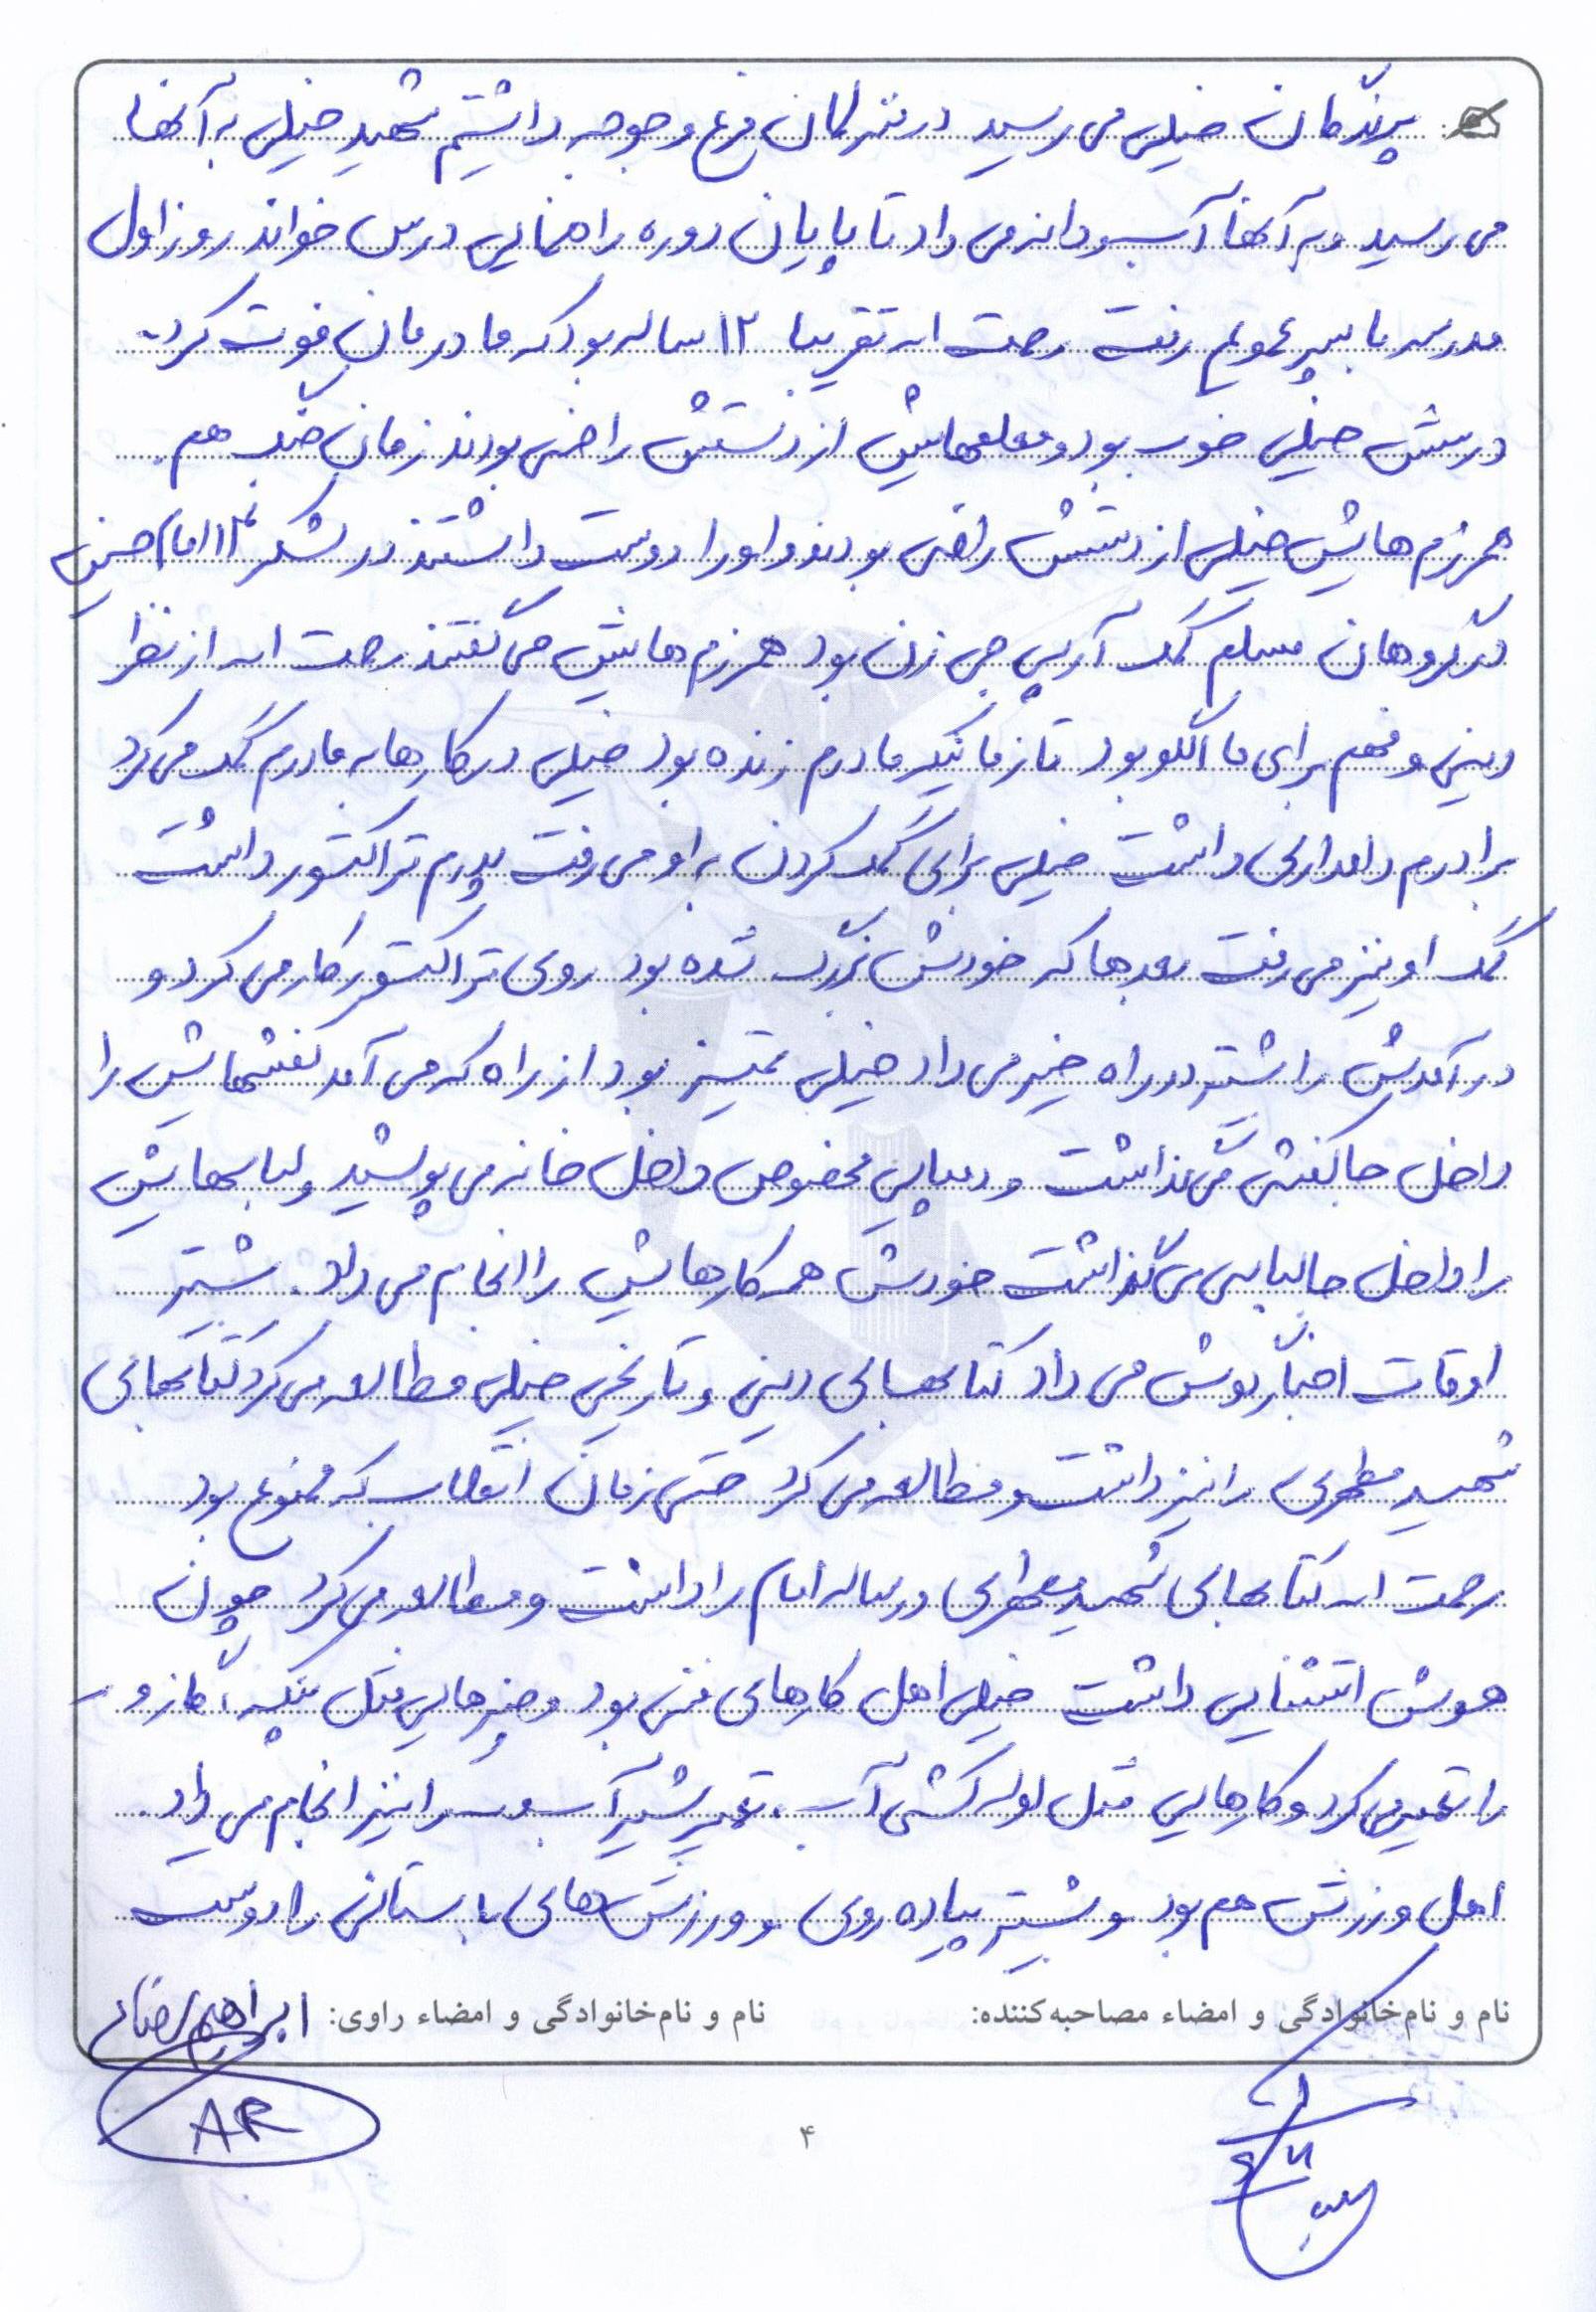 پرندگان خیلی می رسید در منزلمان مرغ و جوجه داشتیم شهید خیلی به آنها
می رسید و به آنها آب و دانه می داد تا پایان دوره راهنمایی درس خواند روز اول
مدرسه با پسر عمویم رفت رحمت اله تقریبا ۱۲ ساله بود که مادرمان فوت کرد
درسش خیلی خوب بود و معلمهایش از دستش راضی بودند زمان جنگ هم
همرزم هایش خیلی از دستش راضی بودند و او را دوست داشتند در لشکر ۱۴ امام حسین
در گروهان مسلم کمک آرپی جی زن بود همرزم هایش می گفتند رحمت اله از نظر
دینی و فهم برای ما الگو بود تا زمانیکه مادرم زنده بود خیلی در کارها به مادرم کمک می کرد
برادرم دامداری داشت خیلی برای کمک کردن به او می رفت پدرم تراکتور داشت
کمک او نیز می رفت بعدها که خودش بزرگ شده بود روی تراکتور کار می کرد و
درآمدش را بیشتر در راه خیر می داد خیلی تمیز بود از راه که می آمد کفشهایش را
داخل جاکفشی می گذاشت و دمپایی مخصوص داخل خانه می پوشید و لباسهایش
را داخل جالباسی می گذاشت خودش همه کارهایش را انجام می داد. بیشتر
اوقات اخبار گوش می داد کتابهای دینی و تاریخی خیلی مطالعه می کرد کتابهای
شهید مطهری را نیز داشت و مطالعه می کرد حتی زمان انقلاب که ممنوع بود
رحمت اله کتابهای شهید مطهری و رساله امام را داشت و مطالعه می کرد چون
هوش استثنایی داشت خیلی اهل کارهای فنی بود و چیزهایی مثل پنکه، گاز و
را تعمیر می کرد و کارهایی مثل لوله کشی آب، تعمیر شیر آب و را نیز انجام می داد.
اهل ورزش هم بود و بیشتر پیاده روی و ورزش های باستانی را دوست
نام و نام‌خانوادگی و امضاء مصاحبه‌کننده: نام و نام‌خانوادگی و امضاء راوی: ابراهیم رضایی
AR
۴